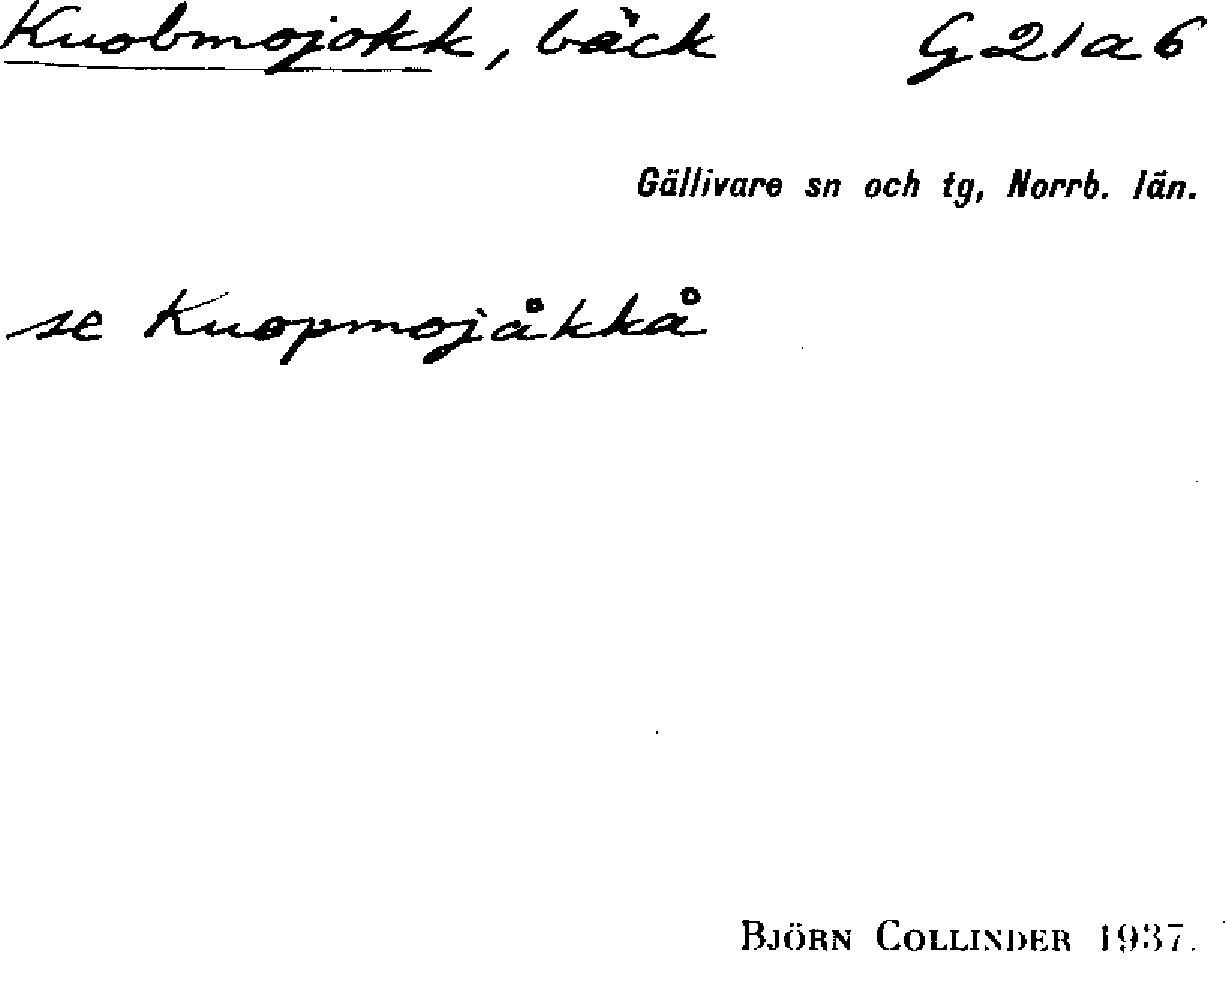 Kuobmojokk, bäck G21a6
Gällivare sn och tg, Norrb. län.
se Kuopmojåkkå
BJÖRN COLLINDER 1937.